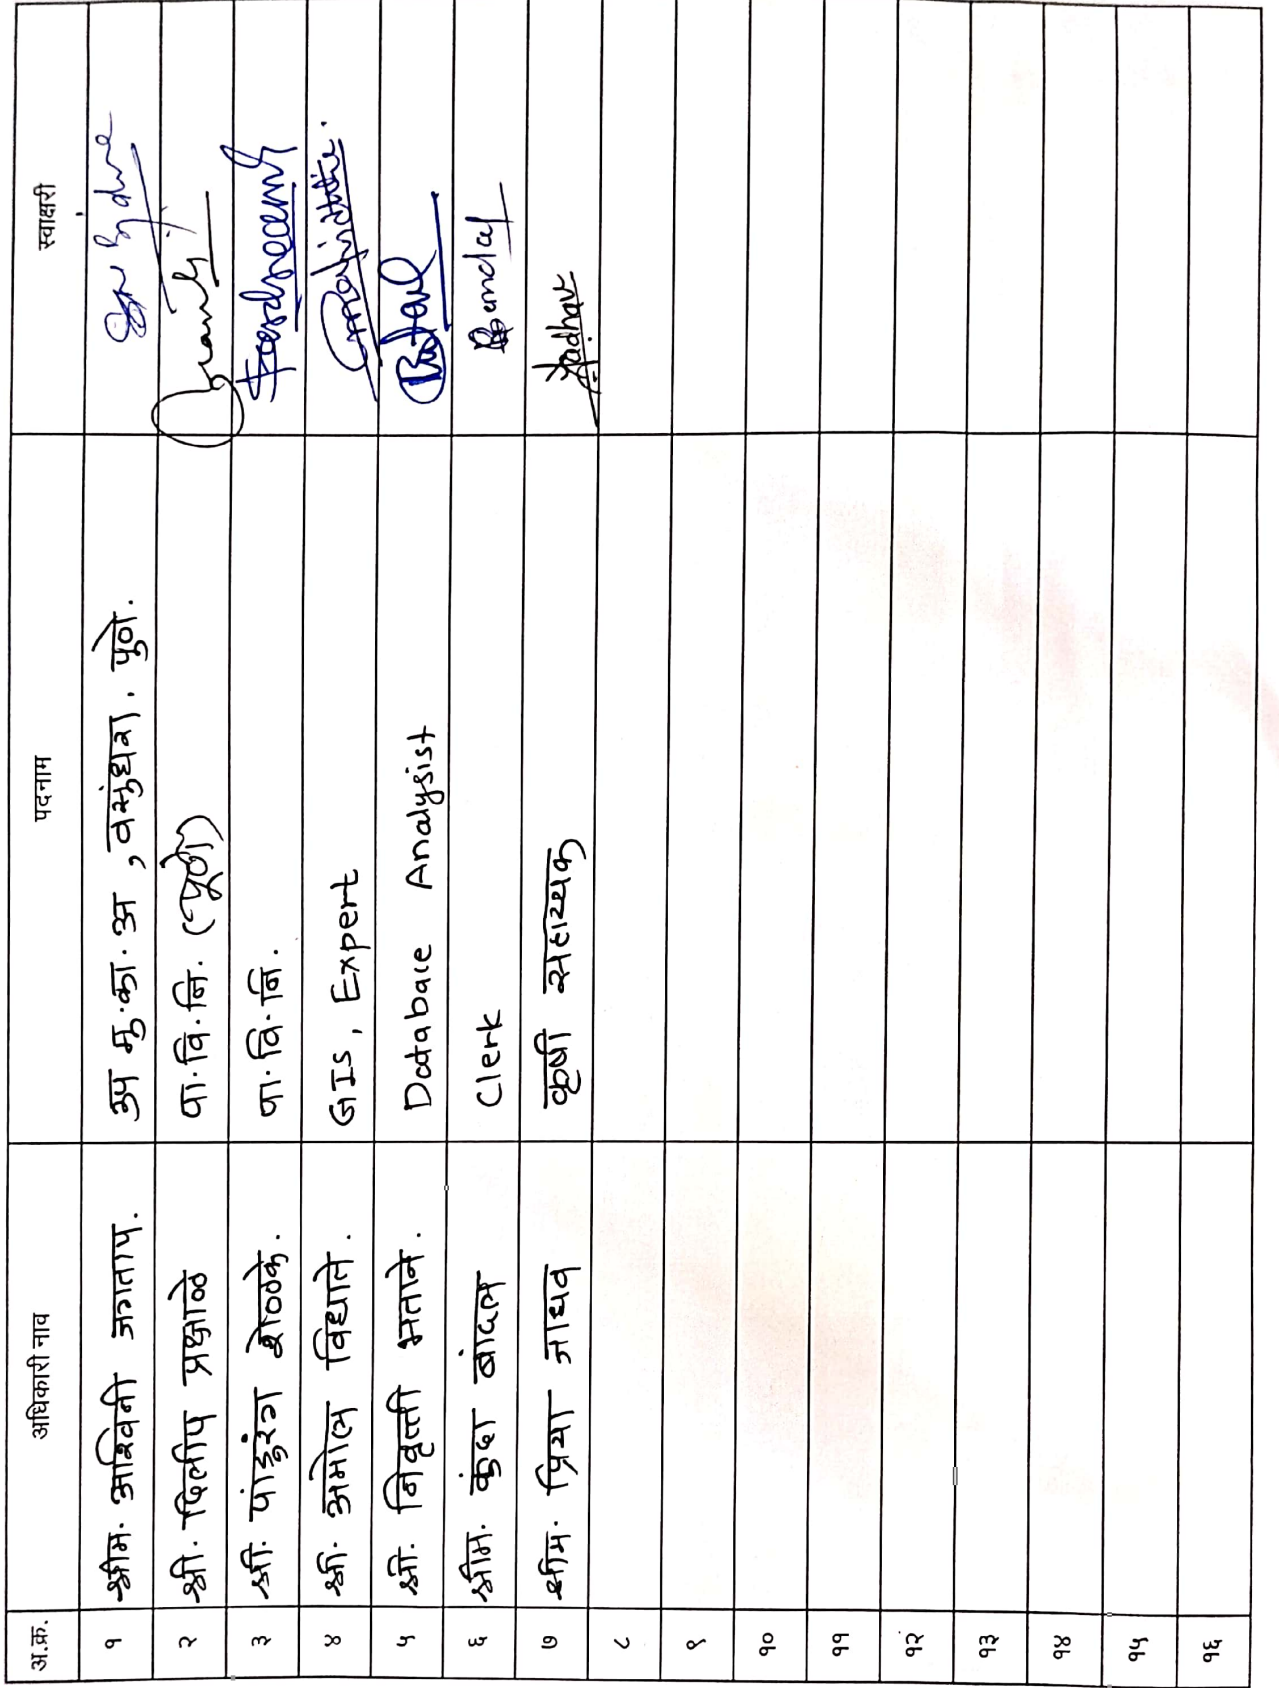 अ.क्र. अधिकारी नाव पदनाम स्वाक्षरी
१ श्रीम. अश्विनी जगताप. उप मु.का.अ , वसुंधरा. पुणे.
२ श्री. दिलीप प्रक्षाळे पा.वि.नि. (पुणे)
३ श्री. पांडुरंग शेळके. पा.वि.नि.
४ श्री. अमोल विधाते. GIS, Expert
५ श्री. निवृत्ती भताने. Database Analysist
६ श्रीम. कुंदा बांदल Clerk Bandal
७ श्रीम. प्रिया जाधव कृषी सहाय्यक Jadhav
८
९
१०
११
१२
१३
१४
१५
१६